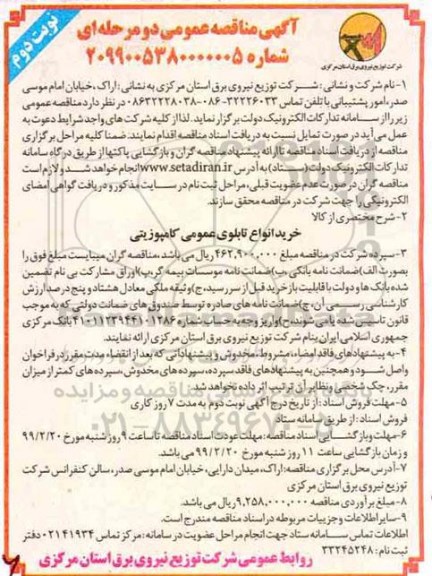 نوبت دوم
آگهی مناقصه عمومی دو مرحله ای
شماره ۲۰۹۹۰۰۵۳۸۰۰۰۰۰۰۵
شرکت توزیع نیروی برق استان مرکزی
۱-نام شرکت و نشانی : شرکت توزیع نیروی برق استان مرکزی به نشانی : اراک ،خیابان امام موسی
صدر، امور پشتیبانی با تلفن تماس ۳۲۲۲۶۰۳۳-۰۸۶ -۰۸۶۳۲۲۲۸۰۳۸ در نظر دارد مناقصه عمومی
زیر را از سامانه تدارکات الکترونیک دولت برگزار نماید. لذا از کلیه شرکت های واجد شرایط دعوت به
عمل می آید در صورت تمایل نسبت به دریافت اسناد مناقصه اقدام نمایند. ضمنا کلیه مراحل برگزاری
مناقصه از دریافت اسناد مناقصه تا ارائه پیشنهاد مناقصه گران و بازگشایی پاکتها از طریق درگاه سامانه
تدارکات الکترونیک دولت (ستاد) به آدرس www.setadiran.ir انجام خواهد شد و لازم است
مناقصه گران در صورت عدم عضویت قبلی، مراحل ثبت نام در سایت مذکور و دریافت گواهی امضای
الکترونیکی را جهت شرکت در مناقصه محقق سازند.
۲- شرح مختصری از کالا
خرید انواع تابلوی عمومی کامپوزیتی
۳-سپرده شرکت در مناقصه مبلغ ۴۶۲,۹۰۰,۰۰۰ ریال می باشد ،مناقصه گران میبایست مبلغ فوق را
بصورت الف)ضمانت نامه بانکی ب)ضمانت نامه موسسات بیمه گر،پ)اوراق مشارکت بی نام تضمین
شده بانک ها و دولت با قابلیت باز خرید قبل از سررسید،ج)وثیقه ملکی معادل هشتاد و پنج درصد ارزش
کارشناسی رسمی آن ،ح)ضمانت نامه های صادره توسط صندوق های ضمانت دولتی که به موجب
قانون تاسیس شده یا می شوند،ح)واریز وجه به حساب شماره بانک مرکزی
جمهوری اسلامی ایران بنام شرکت توزیع نیروی برق استان مرکزی ارائه نمایند.
۴-به پیشنهادهای فاقد امضاء ،مشروط، مخدوش و پیشنهاداتی که بعد از انقضاء مدت مقرر در فراخوان
واصل شود و همچنین به پیشنهادهای فاقد سپرده، سپرده های مخدوش، سپرده های کمتر از میزان
مقرر، چک شخصی و نظایر آن ترتیب اثر داده نخواهد شد.
۵-مهلت فروش اسناد : از تاریخ درج آگهی نوبت دوم به مدت ۷ روز کاری
فروش اسناد : از طریق سامانه ستاد
۶-مهلت و بازگشایی اسناد مناقصه: مهلت عودت اسناد مناقصه تا ساعت ۹ روز شنبه مورخ ۹۹/۲/۲۰
و زمان بازگشایی ساعت ۱۱ روز شنبه مورخ ۹۹/۲/۲۰ می باشد.
۷-آدرس محل برگزاری مناقصه :اراک، میدان دارایی، خیابان امام موسی صدر، سالن کنفرانس شرکت
توزیع نیروی برق استان مرکزی
۸-مبلغ برآوردی مناقصه ۹,۲۵۸,۰۰۰,۰۰۰ ریال می باشد.
۹-سایر اطلاعات و جزییات مربوطه در اسناد مناقصه مندرج است.
اطلاعات تماس سامانه ستاد جهت انجام مراحل عضویت در سامانه: مرکز تماس ۰۲۱۴۱۹۳۴ دفتر
ثبت نام : ۳۳۲۴۵۲۴۸
روابط عمومی شرکت توزیع نیروی برق استان مرکزی